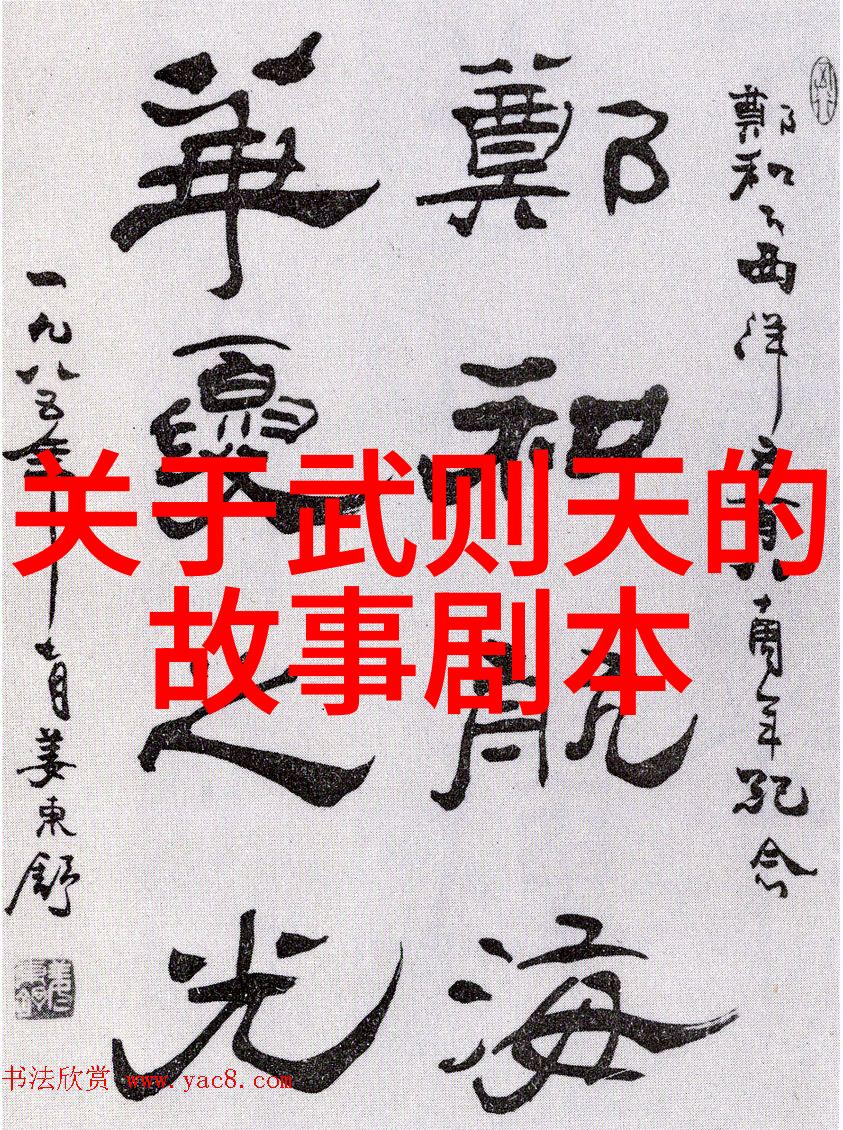 鄭和下西洋五百八十周年紀念
鄭和航海
華夏之光
一九八五年十一月姜東舒
关于武则天的
故事剧本
书法欣赏 www.yac8.com